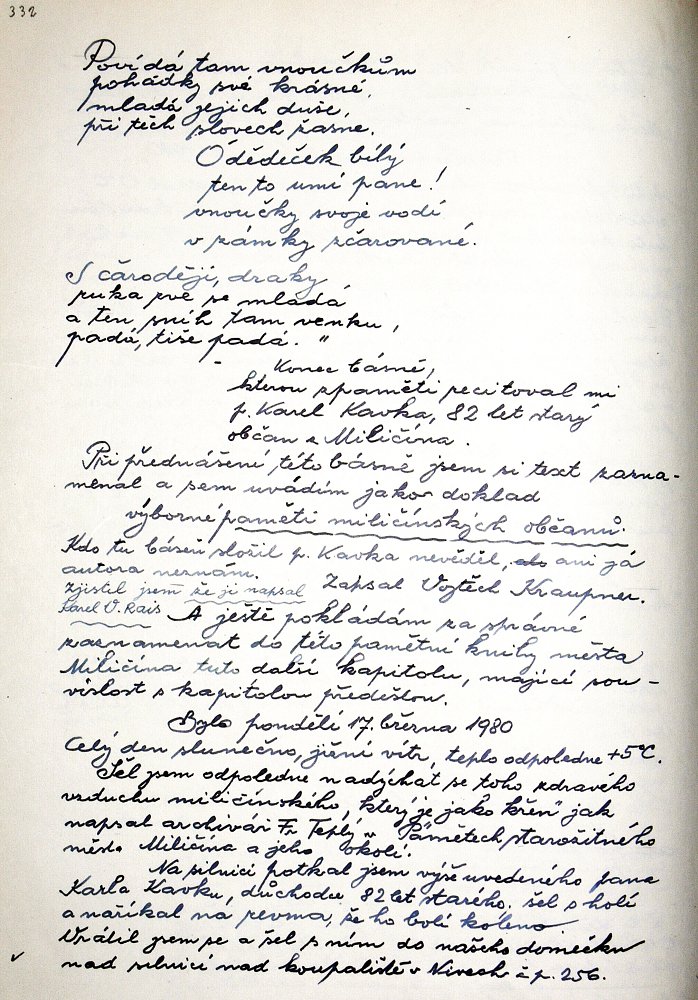 332
Povídá tam vnoučkům
pohádky své krásné,
mladá jejich duše,
při těch slovech žasne.
Ó dědeček bílý
ten to umí pane!
vnoučky svoje vodí
v zámky začarované.
S čaroději, draky
ruka rve se mladá
a ten sníh tam venku,
padá, tiše padá. "
Konec básně,
kterou zpaměti recitoval mi
p. Karel Kavka, 82 let starý
občan z Miličína.
Při přednášení této básně jsem si text zazna-
menal a sem uvádím jako doklad
výborné paměti miličínských občanů.
Kdo tu báseň složil p. Kavka nevěděl, ani já
autora neznám. Zapsal Vojtěch Kraupner.
zjistil jsem že ji napsal
Karel V. Rais
A ještě pokládám za správné
zaznamenat do této pamětní knihy města
Miličína tuto další kapitolu, mající sou-
vislost s kapitolou předešlou.
Bylo pondělí 17. března 1980
Celý den slunečno, jižní vítr, teplo odpoledne +5°C.
Šel jsem odpoledne nadýchat se toho zdravého
vzduchu miličínského, který je jako křen" jak
napsal archivář Fr. Teplý v Pamětech starožitného
města Miličína a jeho okolí.
Na silnici potkal jsem výše uvedeného pana
Karla Kavku, důchodce 82 let starého. šel s holí
a naříkal na revma, že ho bolí koleno.
Vrátil jsem se a šel s ním do našeho domečku
nad silnicí nad koupalištěm v Nivech čp. 256.